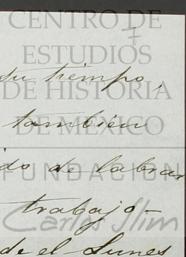 CENTRO DE
7
ESTUDIOS
su tiempo,
DE HISTORIA
también
DE MÉXICO
do de labrar
FUNDACIÓN
trabajo-
Carlos Slim
de el Lunes